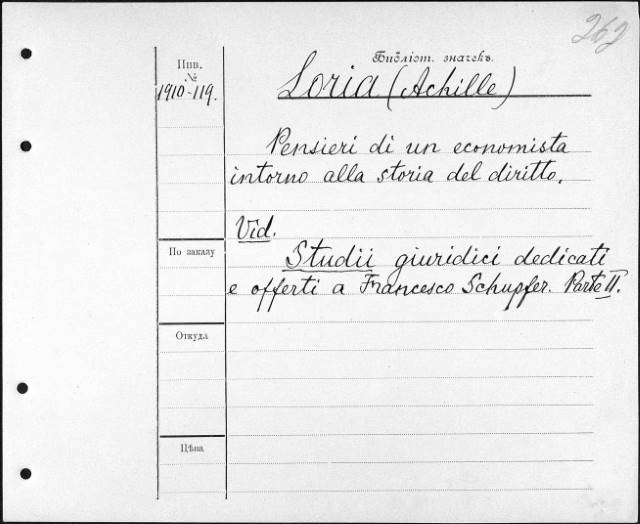 262
Библіот. значекъ.
Инв.
№
1910-119.
Loria (Achille)
Pensieri di un economista
intorno alla storia del diritto.
Vid.
По заказу
Studii giuridici dedicati
e offerti a Francesco Schupfer. Parte II.
Откуда
Цѣна